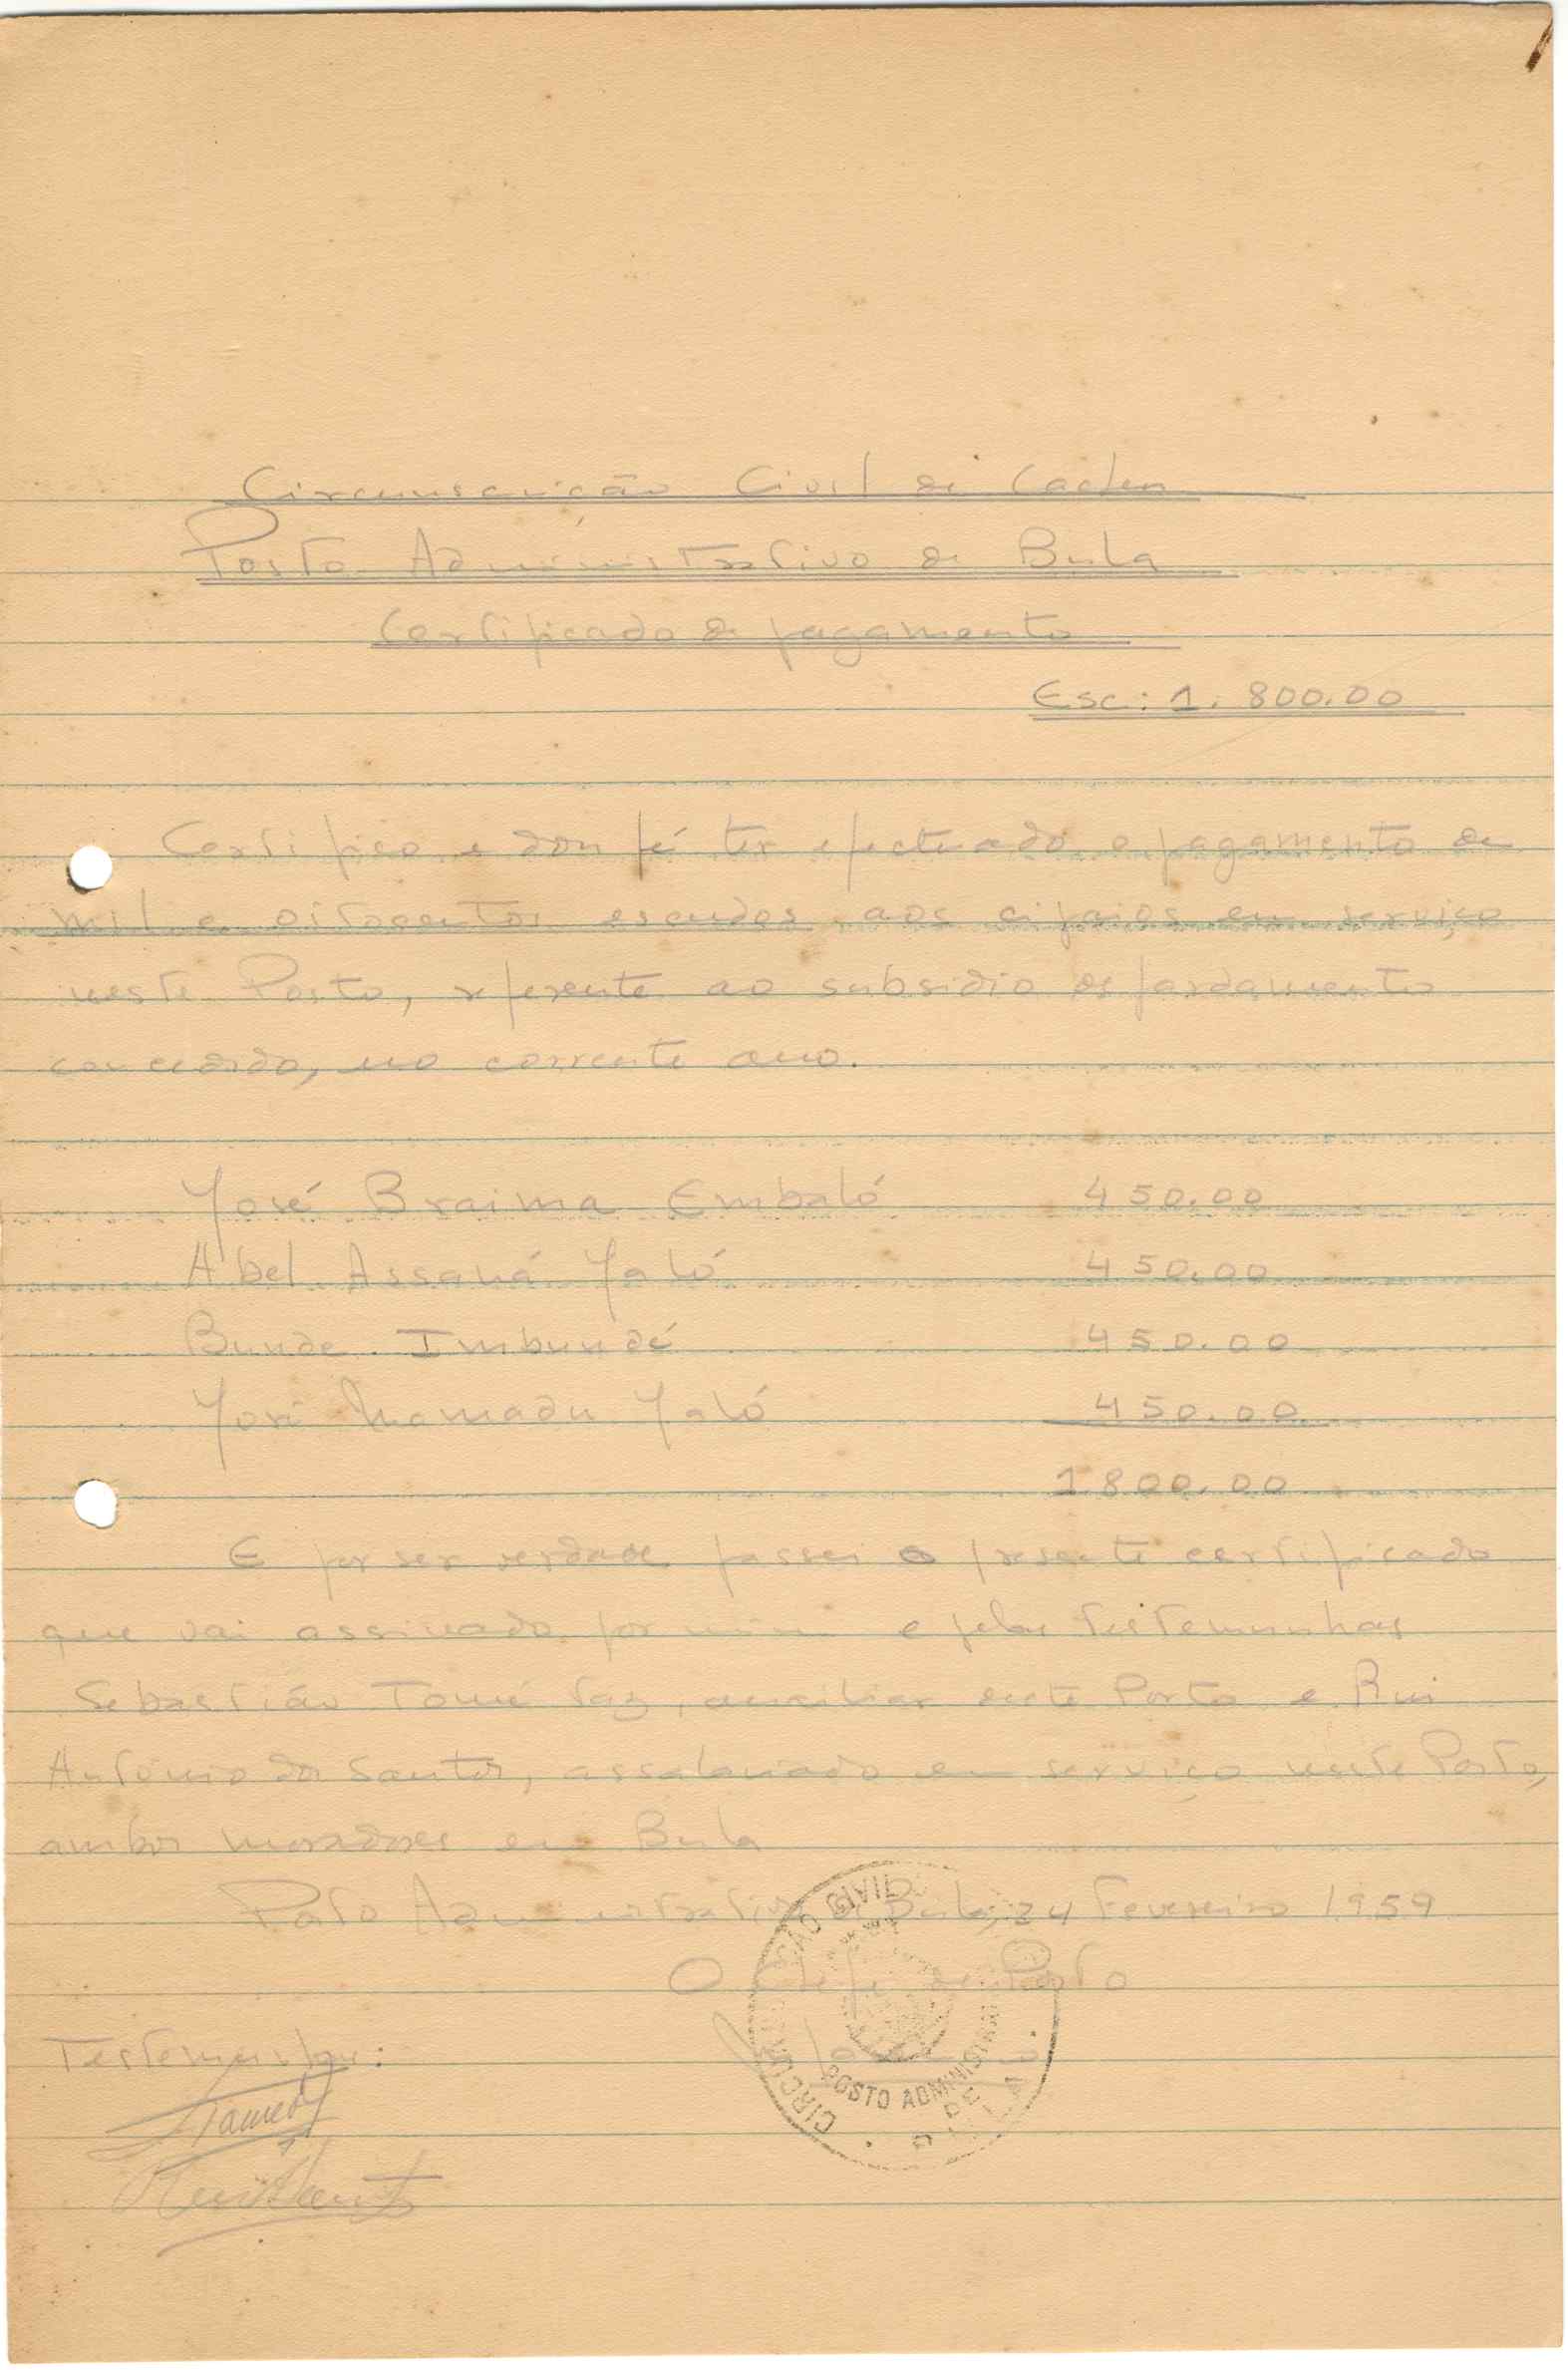 Circunscrição Civil de Cacheu
Posto Administrativo de Bula
Certificado de pagamento
Esc: 1.800.00
Certifico e dou fé ter efectuado o pagamento de
mil e oitocentos escudos aos cipaios em serviço
neste Posto, referente ao subsidio de fardamento
concedido, no corrente ano.
José Braima Embaló 450.00
Abel Assaná Jaló 450.00
Bunde Imbundé 450.00
José Mamadu Jaló 450.00
1800.00
E por ser verdade passei o presente certificado
que vai assinado por mim e pelas testemunhas
Sebastião Tomé Vaz, auxiliar deste Posto e Rui
António dos Santos, assalariado em serviço neste Posto,
ambos moradores em Bula
Posto Administrativo de Bula, 24 Fevereiro 1959
O Chefe de Posto
CIRCUNSCRIÇÃO CIVIL
POSTO ADMINISTRATIVO
DE BULA
Testemunhas: